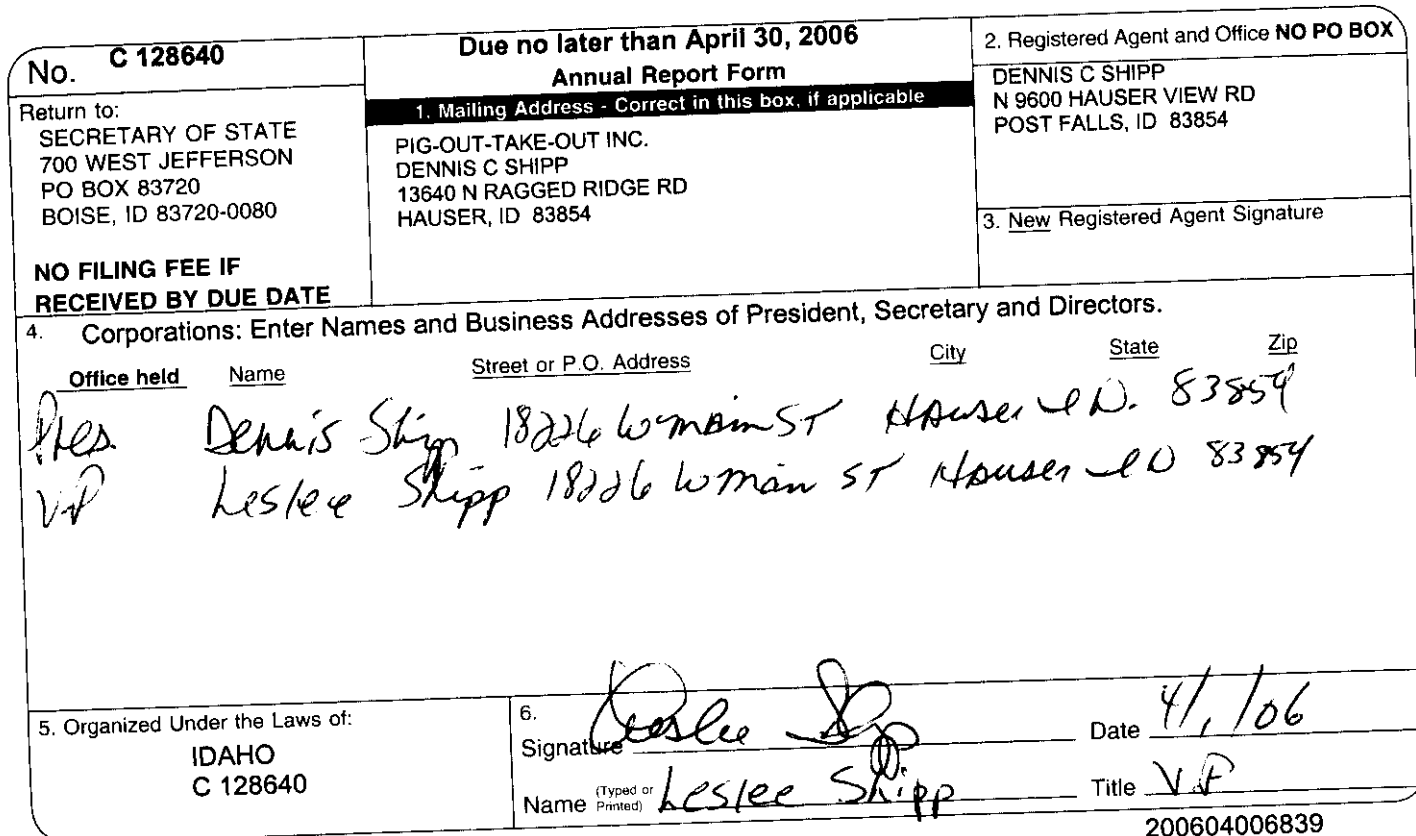 No. C 128640
Return to:
SECRETARY OF STATE
700 WEST JEFFERSON
PO BOX 83720
BOISE, ID 83720-0080
NO FILING FEE IF
RECEIVED BY DUE DATE
Due no later than April 30, 2006
Annual Report Form
1. Mailing Address - Correct in this box, if applicable
PIG-OUT-TAKE-OUT INC.
DENNIS C SHIPP
13640 N RAGGED RIDGE RD
HAUSER, ID 83854
2. Registered Agent and Office NO PO BOX
DENNIS C SHIPP
N 9600 HAUSER VIEW RD
POST FALLS, ID 83854
3. New Registered Agent Signature
4. Corporations: Enter Names and Business Addresses of President, Secretary and Directors.
Office held Name Street or P.O. Address City State Zip
Pres. Dennis Shipp 18226 W main ST Hauser ID. 83854
VP Leslee Shipp 18226 W main ST Hauser ID 83854
5. Organized Under the Laws of:
IDAHO
C 128640
6.
Signature Leslee Shipp Date 4/1/06
Name (Typed or Printed) Leslee Shipp Title V.P
200604006839